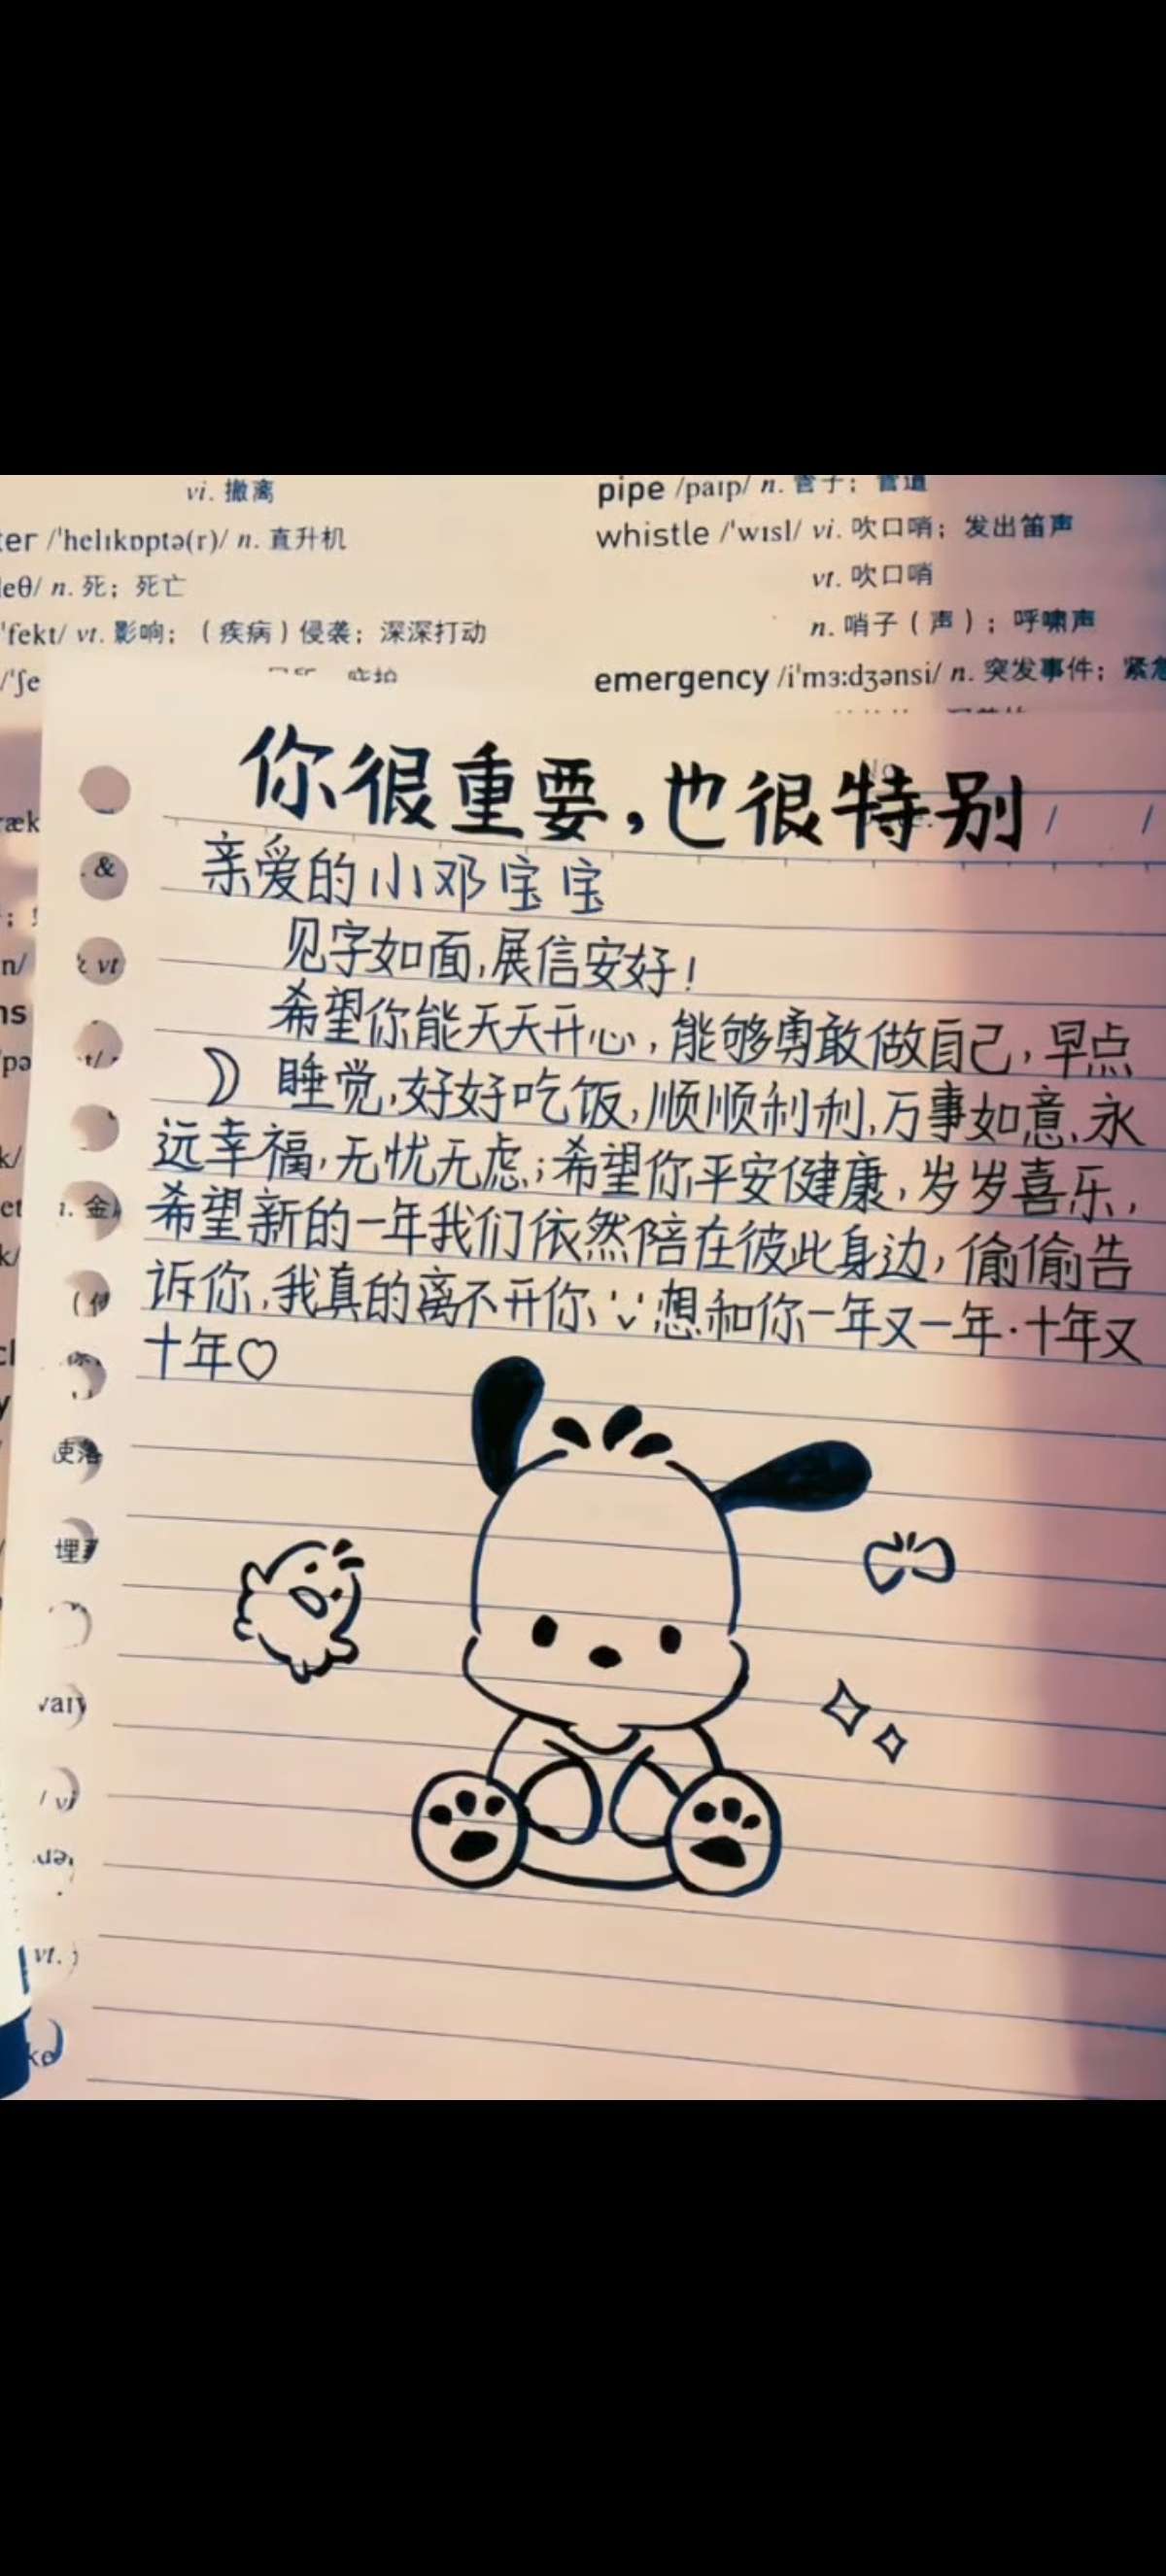 vi. 撤离
ter /ˈhelɪkɒptə(r)/ n. 直升机
eθ/ n. 死；死亡
ˈfekt/ vt. 影响；（疾病）侵袭；深深打动
/ˈʃe
pipe /paɪp/ n. 管子；管道
whistle /ˈwɪsl/ vi. 吹口哨；发出笛声
vt. 吹口哨
n. 哨子（声）；呼啸声
emergency /iˈmɜːdʒənsi/ n. 突发事件；紧急
No
你很重要,也很特别
/ /
亲爱的小邓宝宝
见字如面,展信安好!
希望你能天天开心,能够勇敢做自己,早点
睡觉,好好吃饭,顺顺利利,万事如意,永
远幸福,无忧无虑;希望你平安健康,岁岁喜乐,
希望新的一年我们依然陪在彼此身边,偷偷告
诉你,我真的离不开你,想和你一年又一年·十年又
十年♡
ræk
&
n/
vt
ns
/pə
t/
k/
et
n. 金
k/
使落
埋
vary
/ vi
vt.
ke